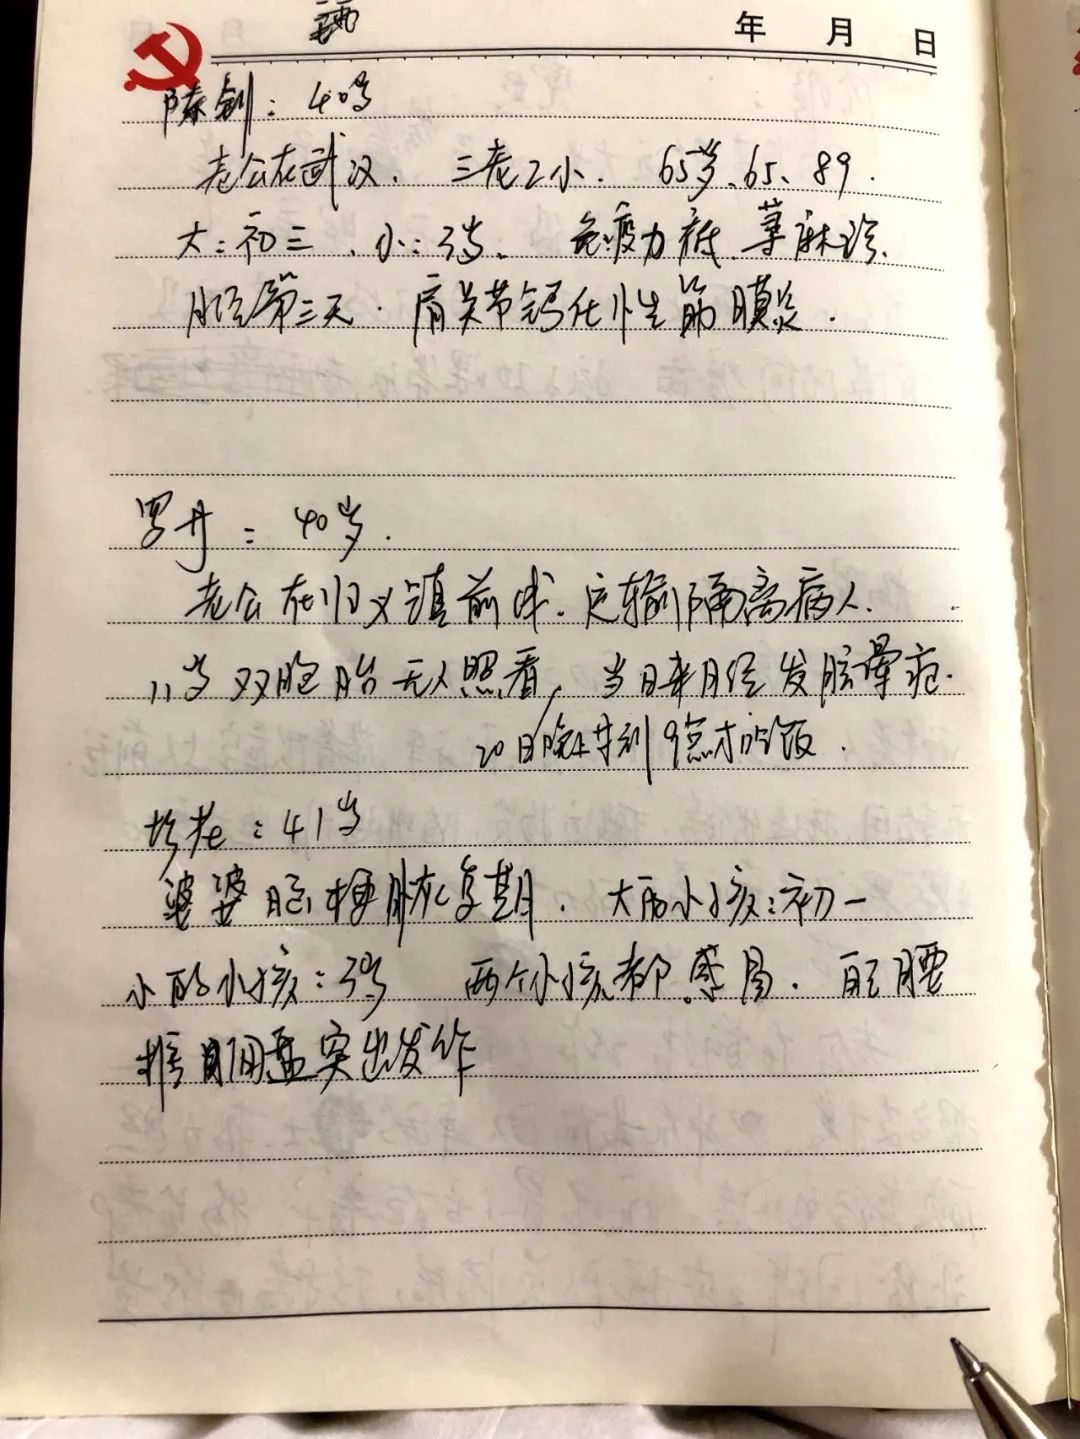 年 月 日
陈剑：40岁
老公在武汉．三老2小．65岁、65、89．
大：初三．小：3岁．免疫力低、荨麻疹、
月经第三天．肩关节钙化性筋膜炎．
罗丹：40岁．
老公在归义镇前线．运输隔离病人．
11岁双胞胎无人照看，当日来月经发脓晕疱．
20日晚上转到9点才吃饭．
：41岁
婆婆脑梗恢复期．大的小孩：初一
小的小孩：3岁 两个小孩都感冒．自己腰
椎间盘突出发作